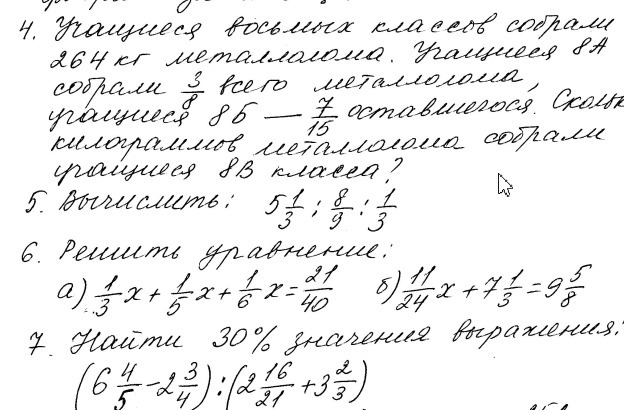 4. Учащиеся восьмых классов собрали
264 кг металлолома. Учащиеся 8А
собрали 3/8 всего металлолома,
учащиеся 8Б — 7/15 оставшегося.
килограммов металлолома собрали
учащиеся 8В класса?
5. Вычислить: 5 1/3 : 8/9 : 1/3
6. Решить уравнение:
а) 1/3 x + 1/5 x + 1/6 x = 21/40 б) 11/24 x + 7 1/3 = 9 5/8
7. Найти 30% значения выражения:
(6 4/5 - 2 3/4) : (2 16/21 + 3 2/3)